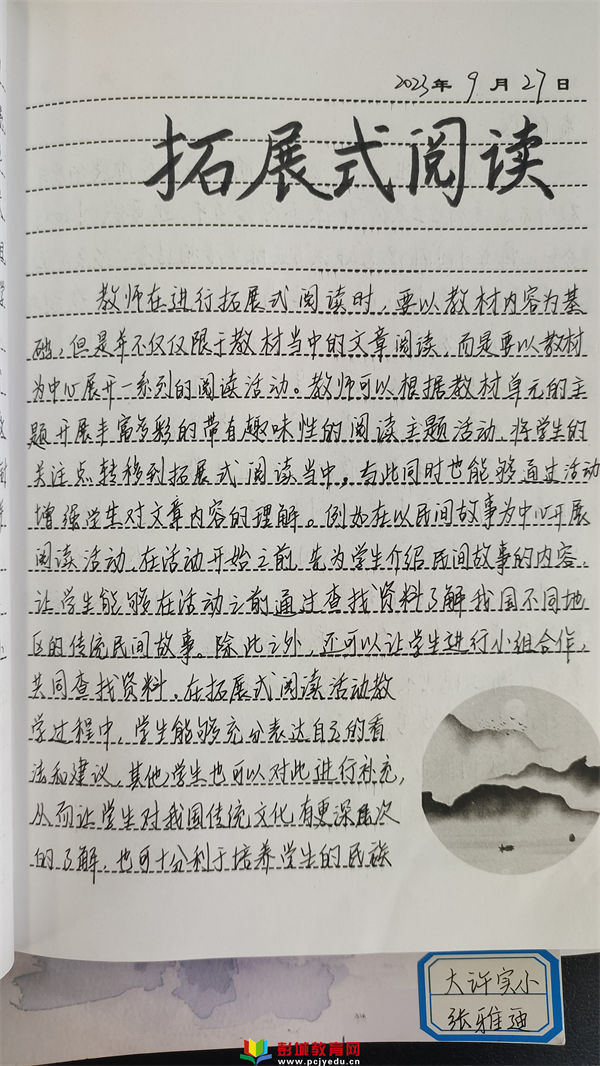 2023年9月27日
拓展式阅读
教师在进行拓展式阅读时，要以教材内容为基
础，但是并不仅仅限于教材当中的文章阅读，而是要以教材
为中心展开一系列的阅读活动。教师可以根据教材单元的主
题开展丰富多彩的带有趣味性的阅读主题活动，将学生的
关注点转移到拓展式阅读当中，与此同时也能够通过活动
增强学生对文章内容的理解。例如在以民间故事为中心开展
阅读活动，在活动开始之前，先为学生介绍民间故事的内容，
让学生能够在活动之前通过查找资料了解我国不同地
区的传统民间故事。除此之外，还可以让学生进行小组合作，
共同查找资料，在拓展式阅读活动教
学过程中，学生能够充分表达自己的看
法和建议，其他学生也可以对此进行补充，
从而让学生对我国传统文化有更深层次
的了解，也可十分利于培养学生的民族
大许实小
张雅迪
彭城教育网
www.pcjyedu.cn